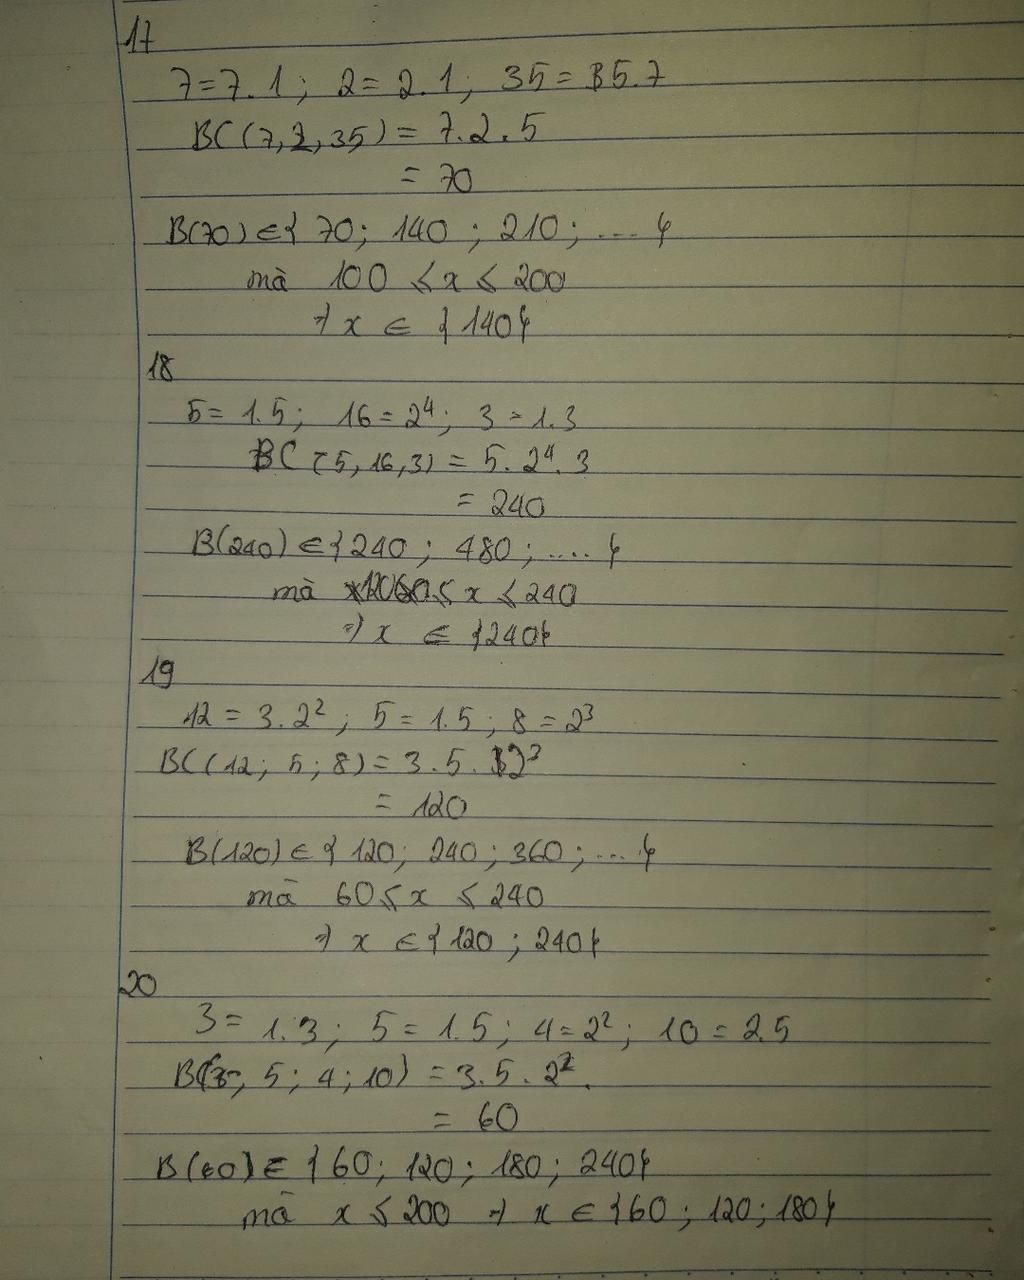 17
7=7.1; 2=2.1; 35=5.7
BC(7,2,35) = 7.2.5
= 70
B(70) ∈ { 70; 140 ; 210 ; .... }
mà 100 ≤ x ≤ 200
=> x ∈ { 140 }
18
5= 1.5; 16=2⁴; 3=1.3
BC (5,16,3) = 5.2⁴.3
= 240
B(240) ∈ { 240 ; 480 ; ..... }
mà ≤ x ≤ 240
=> x ∈ { 240 }
19
12 = 3.2² ; 5 = 1.5 ; 8 = 2³
BC(12; 5; 8) = 3.5.2³
= 120
B(120) ∈ { 120; 240 ; 360 ; .... }
mà 60 ≤ x ≤ 240
=> x ∈ { 120 ; 240 }
20
3= 1.3; 5 = 1.5; 4=2²; 10 = 2.5
B(3, 5; 4; 10) = 3.5.2².
= 60
B(60) ∈ { 60; 120; 180; 240 }
mà x ≤ 200 => x ∈ { 60 ; 120; 180 }